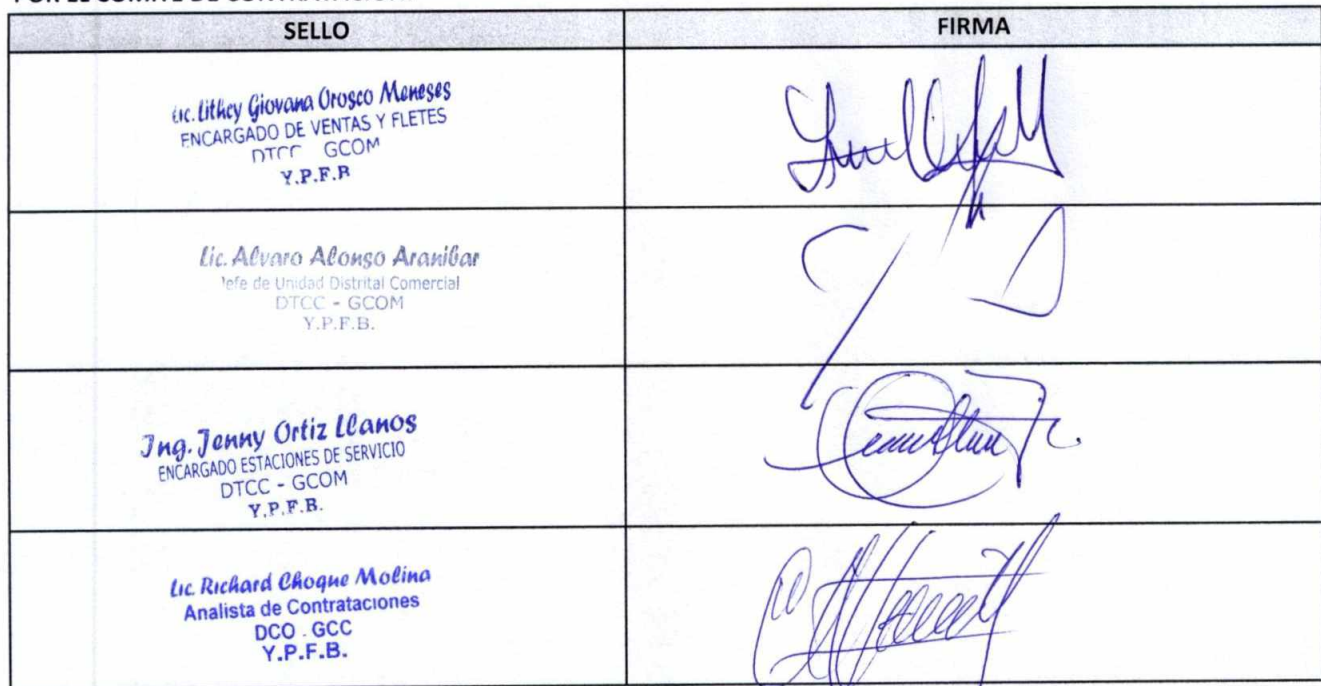 POR EL COMITÉ DE CONTRATACIÓN
SELLO FIRMA
Lic. Lithcy Giovana Orosco Meneses
ENCARGADO DE VENTAS Y FLETES
DTCC GCOM
Y.P.F.B
Lic. Alvaro Alonso Aranibar
Jefe de Unidad Distrital Comercial
DTCC - GCOM
Y.P.F.B.
Ing. Jenny Ortiz Llanos
ENCARGADO ESTACIONES DE SERVICIO
DTCC - GCOM
Y.P.F.B.
Lic. Richard Choque Molina
Analista de Contrataciones
DCO . GCC
Y.P.F.B.